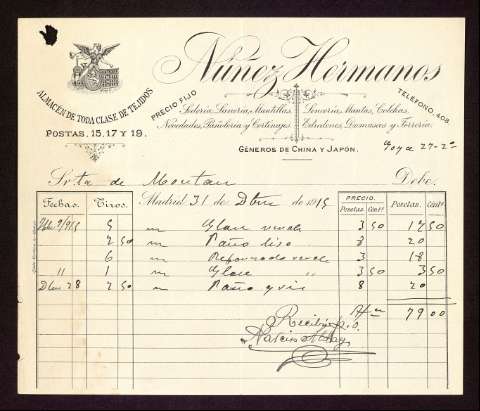 Núñez Hermanos
ALMACEN DE TODA CLASE DE TEJIDOS
POSTAS, 15, 17 Y 19.
PRECIO FIJO
TELÉFONO, 408
Sedería, Lanería, Mantillas, Lencería, Mantas, Colchas,
Novedades, Pañolería y Cortinajes Edredones, Damascos y Tercería.
GÉNEROS DE CHINA Y JAPÓN.
Goya 27-2º
Srta de Montan Debe:
Madrid 31 de Dbre de 1915
Fechas. Tiros. PRECIO. Pesetas. Cents
Pesetas Cents
5 m Glase verde 3 50 17 50
2 50 m Paño liso 8 20
6 m Reforzado verde 3 18
" 1 m Glase " 3 50 3 50
Dbre 28 2 50 m Paño gris 8 20
79 00
Recibí